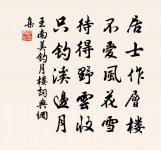 居士作層樓
不愛風花雪
待得野雲收
只釣溪邊月
王南美釣月樓詞典網
集